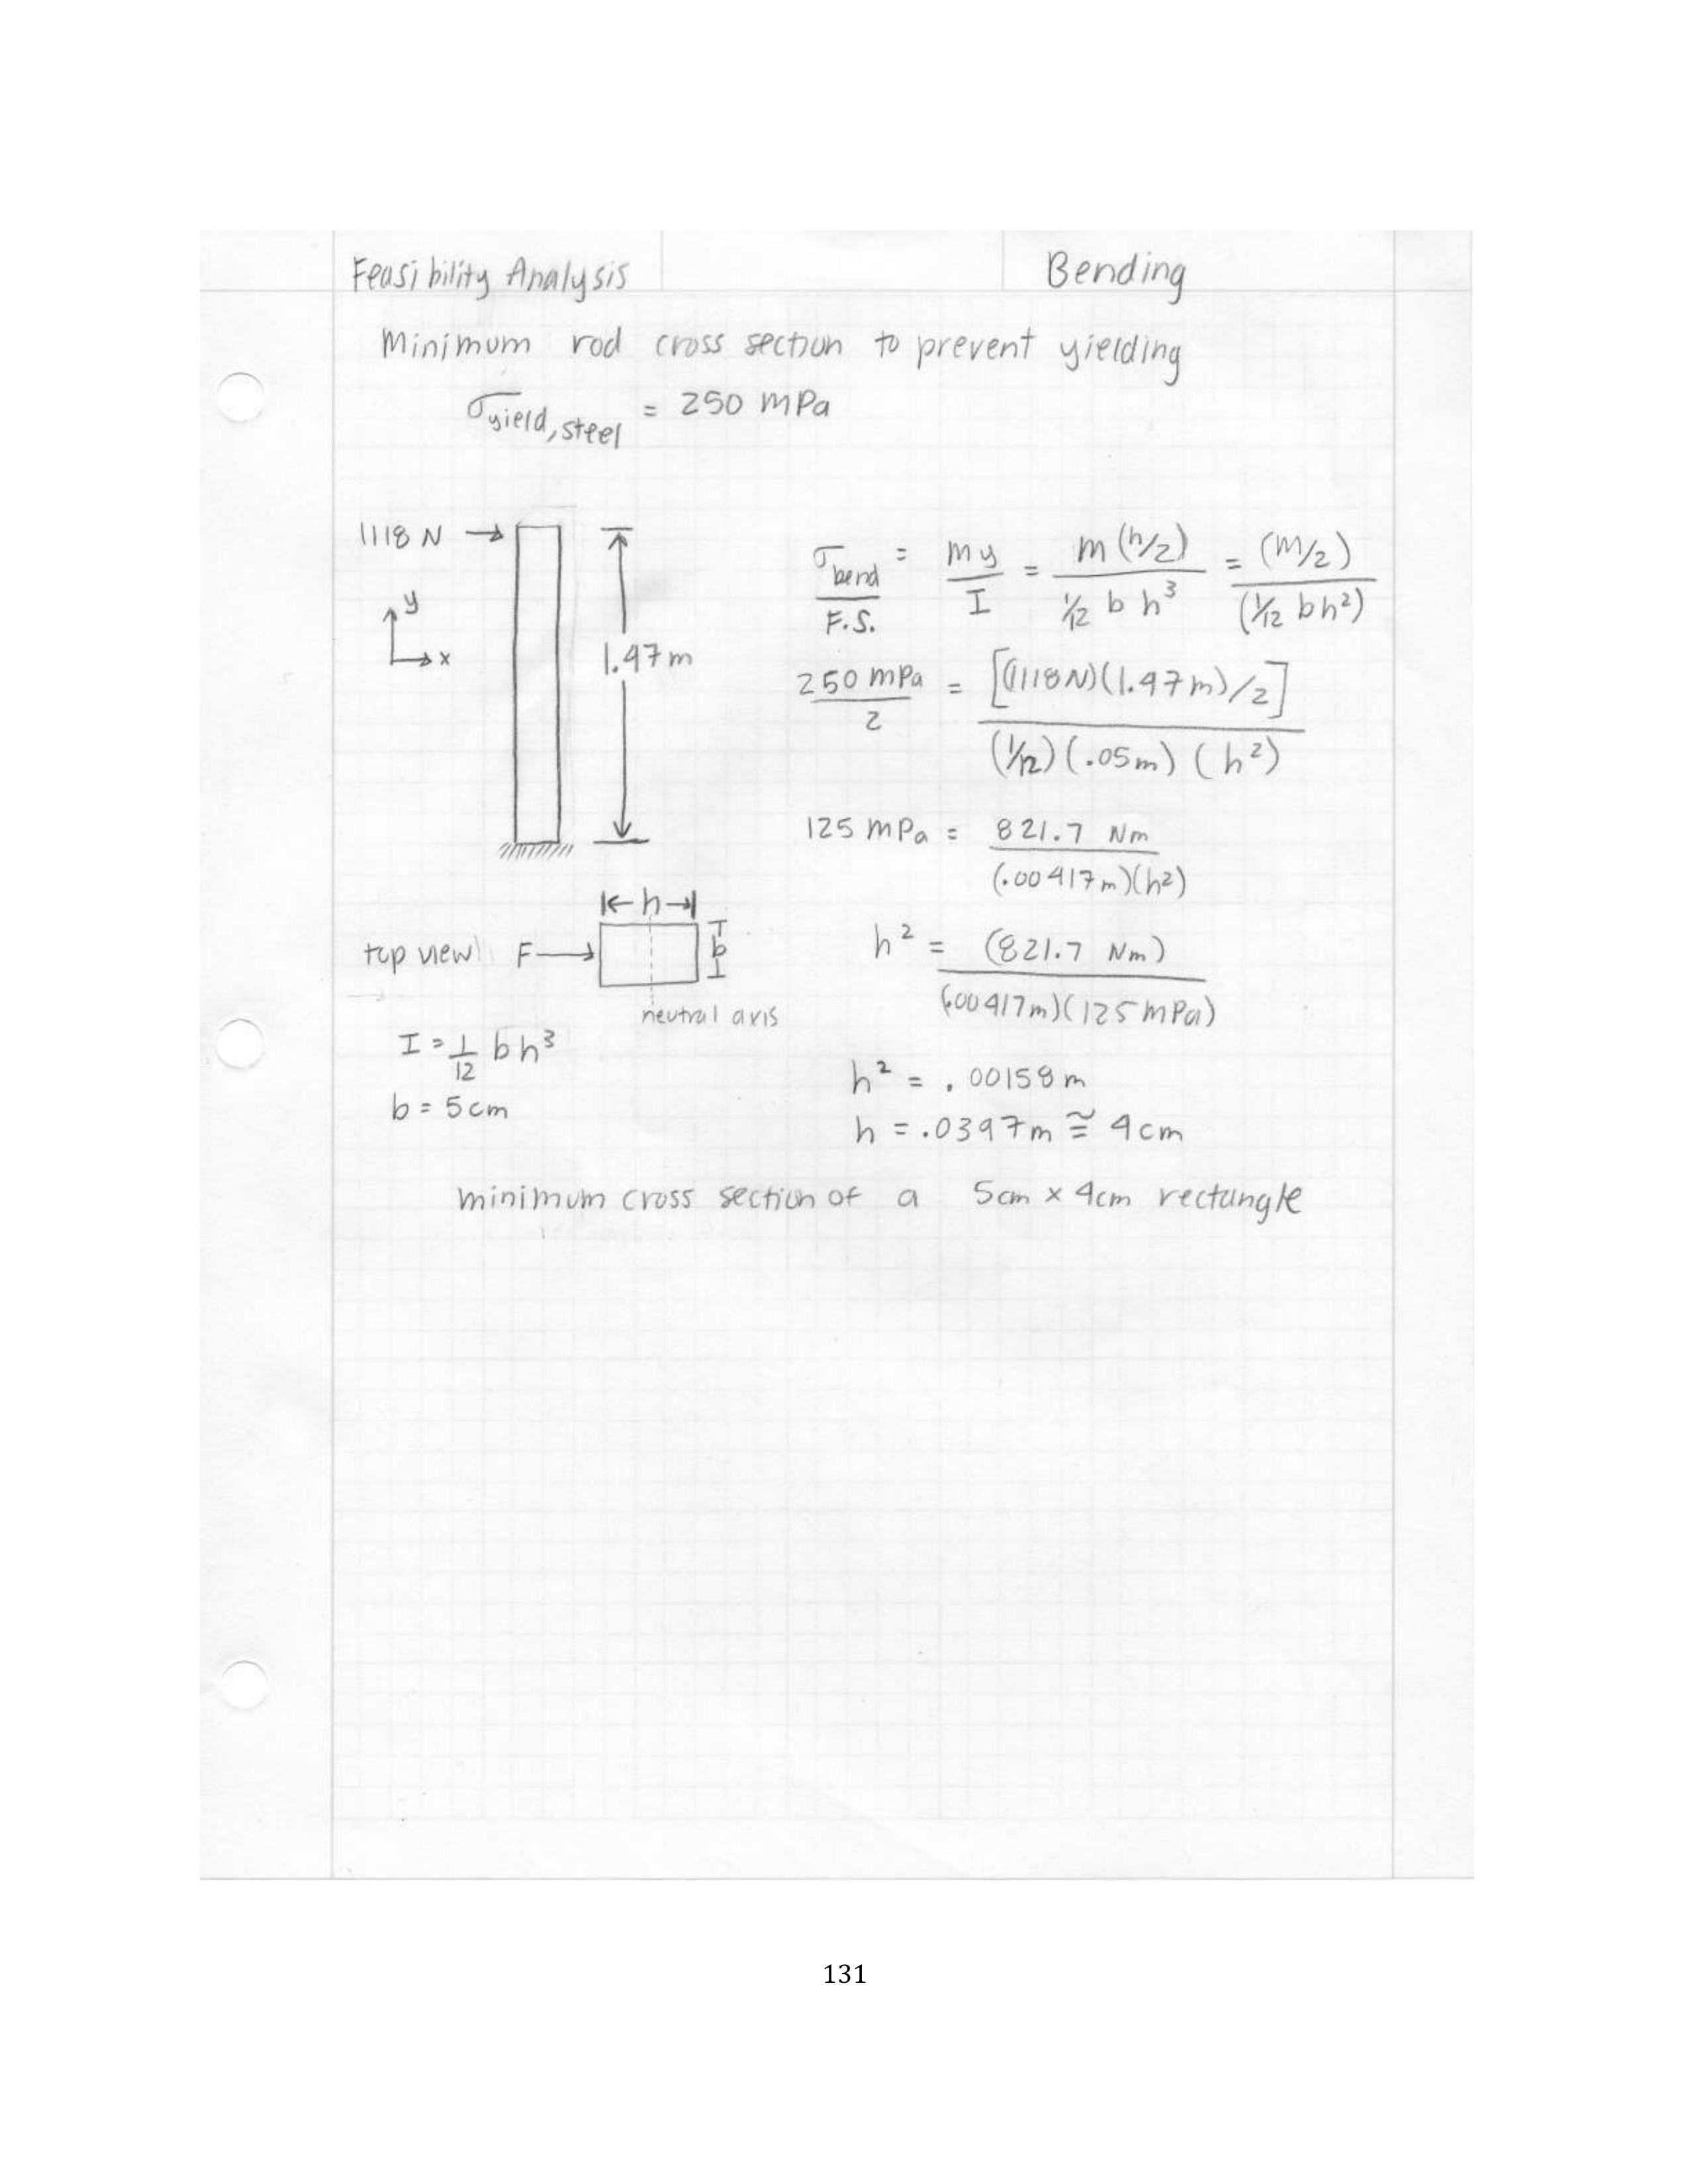 Feasibility Analysis
Bending
Minimum rod cross section to prevent yielding
σyield, steel = 250 MPa
1118 N →
y
x
1.47m
σbend / F.S. = My / I = M(h/2) / (1/12 b h³) = (M/2) / (1/12 bh²)
250 MPa / 2 = [(1118N)(1.47m)/2] / (1/12)(.05m)(h²)
125 MPa = 821.7 Nm / (.00417m)(h²)
|← h →|
top view F → b
neutral axis
h² = (821.7 Nm) / (.00417m)(125 MPa)
I = 1/12 bh³
b = 5cm
h² = .00158m
h = .0397m ≅ 4cm
minimum cross section of a 5cm x 4cm rectangle
131